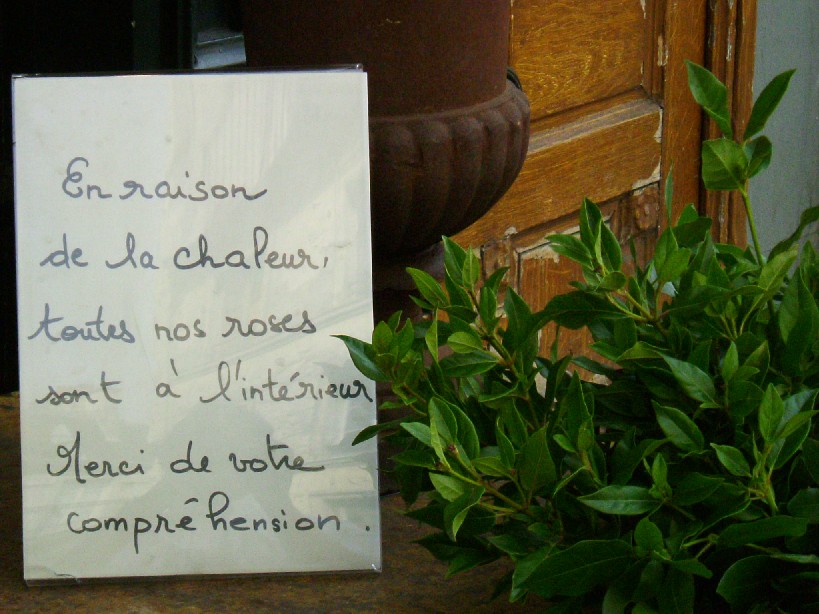 En raison
de la chaleur,
toutes nos roses
sont à l'intérieur
Merci de votre
compréhension.